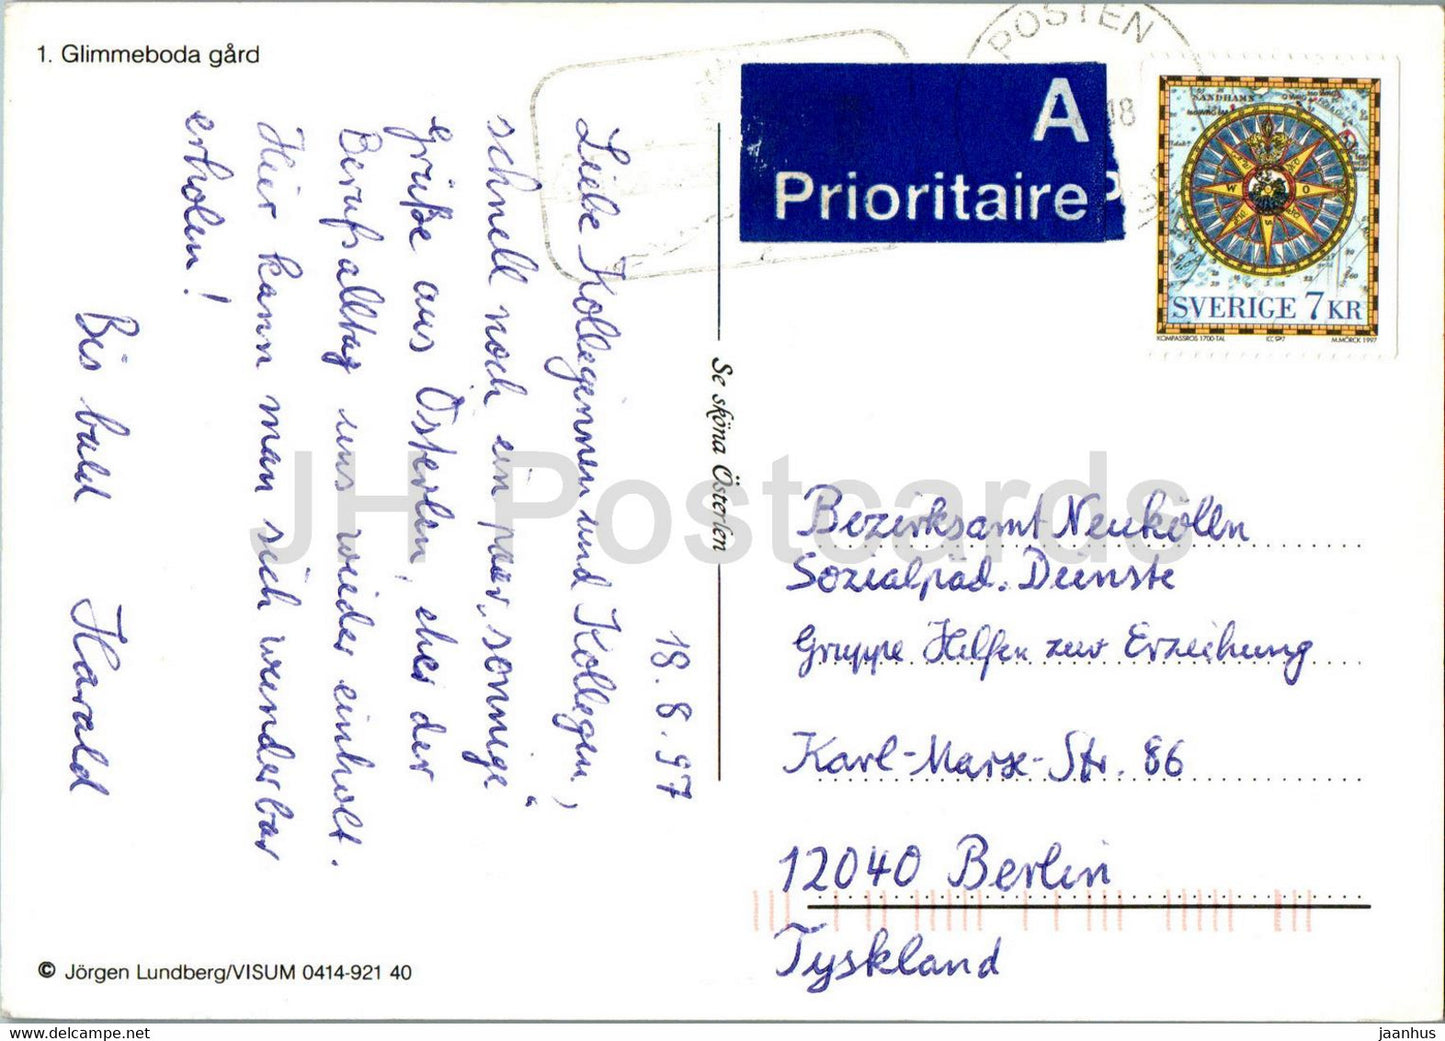 1. Glimmeboda gård
18.8.97
Liebe Kolleginnen und Kollegen,
schnell noch ein paar „sonnige“
Grüße aus Österlen, eher der
Berufsalltag uns wieder einholt.
Hier kann man sich wunderbar
erholen!
Bis bald Harald
© Jörgen Lundberg/VISUM 0414-921 40
Se sköna Österlen
POSTEN
18
A
Prioritaire
SANDHAMN
W O
SVERIGE 7 KR
KOMPASSROS 1700-TAL
M.MÖRCK 1997
Bezirksamt Neukölln
Sozialpäd. Dienste
Gruppe Hilfen zur Erziehung
Karl-Marx-Str. 86
12040 Berlin
Tyskland
JH Postcards
jaanhus